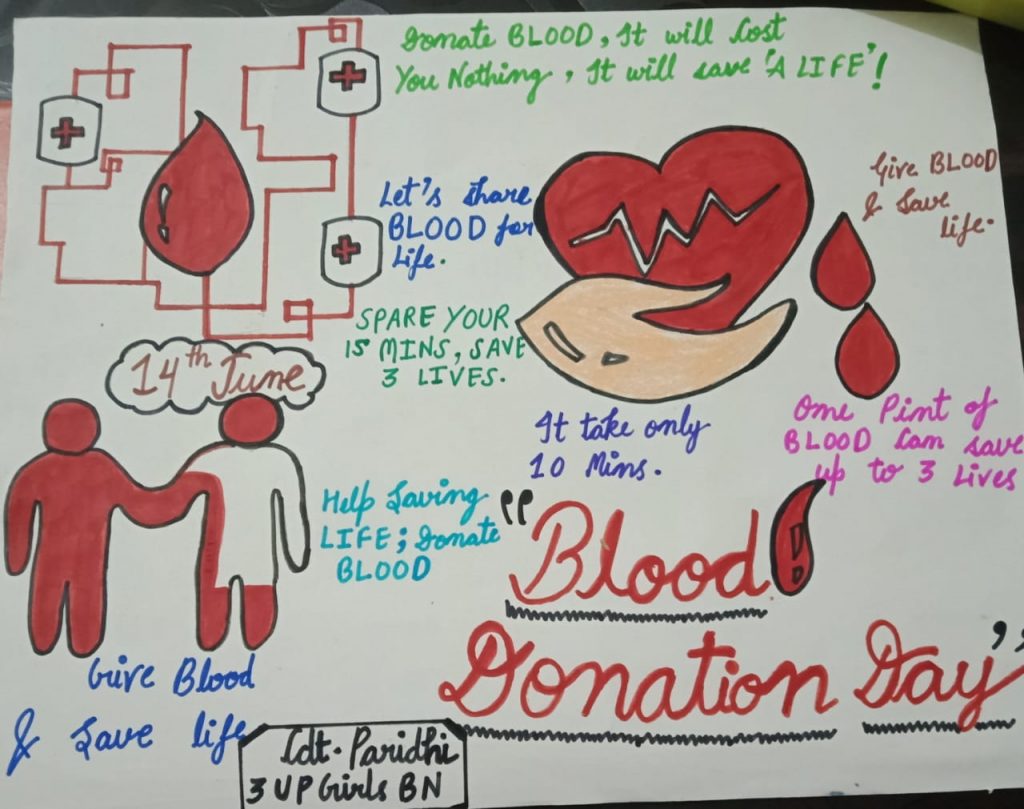 Donate BLOOD, It will Cost
You Nothing, It will save 'A LIFE'!
Let's share
BLOOD for
Life.
Give BLOOD
& Save
life.
SPARE YOUR
15 MINS, SAVE
3 LIVES.
14th June
It take only
10 Mins.
One Pint of
BLOOD Can save
up to 3 Lives
Help Saving
LIFE; Donate
BLOOD
"Blood
Donation Day"
Give Blood
& Save life
Cdt. Paridhi
3 UP Girls BN